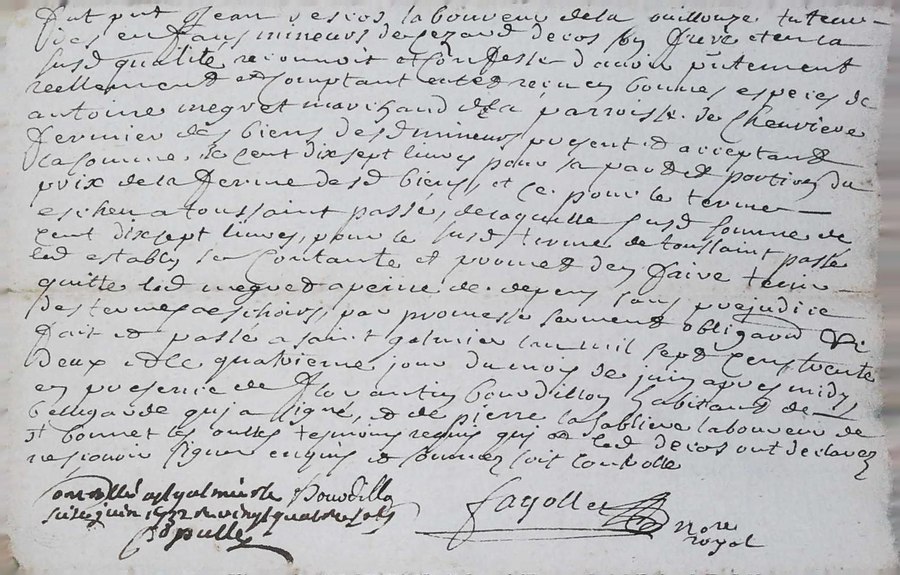 fut pnt Jean decios laboureur de la ouillouze tuteur
des enfans mineurs de Gezaud decios son frere et en la
susd qualité reconnoit et confesse d'avoir pntement
reellement et comptant eu et receu en bonnes especes de
antoine megret marchand de la parroisse de Chenviere
fermier des biens desd mineurs present et acceptant
la somme de cent dix sept livres pour sa part et portion du
prix de la ferme desd biens, et ce pour le terme
escheu a toussaint passé, de laquelle susd somme de
cent dix sept livres, pour le susd terme de toussaint passé
led estably se contante et promet den faire tenir
quitte led megret a peine de depens sans prejudice
des termes a eschoir, par promesse serment obligaon
fait et passé a saint galmier lan mil sept cens trente
deux et le quatrieme jour du mois de juin apres midy
en presence de florantin bourdillon habitant de
belugarde qui a signé, et de pierre la sabliere laboureur de
st bonnet les oulles tesmoins requis qui et led decios ont declarez
ne scavoir signer enquis et sommez soit controllé
Controllé a st galmier le Bourdillon
juin 1732 vingt quatre sols
fayolle
nore
royal